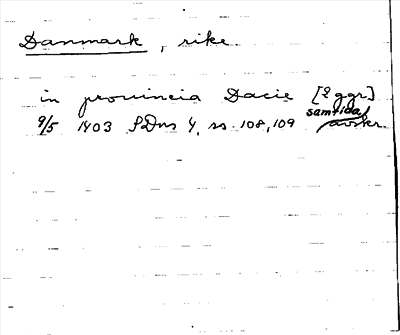 Danmark, rike
in prouincia Dacie [2 ggr]
9/5 1403 SDns 4, ss. 108, 109 samtida avskr.